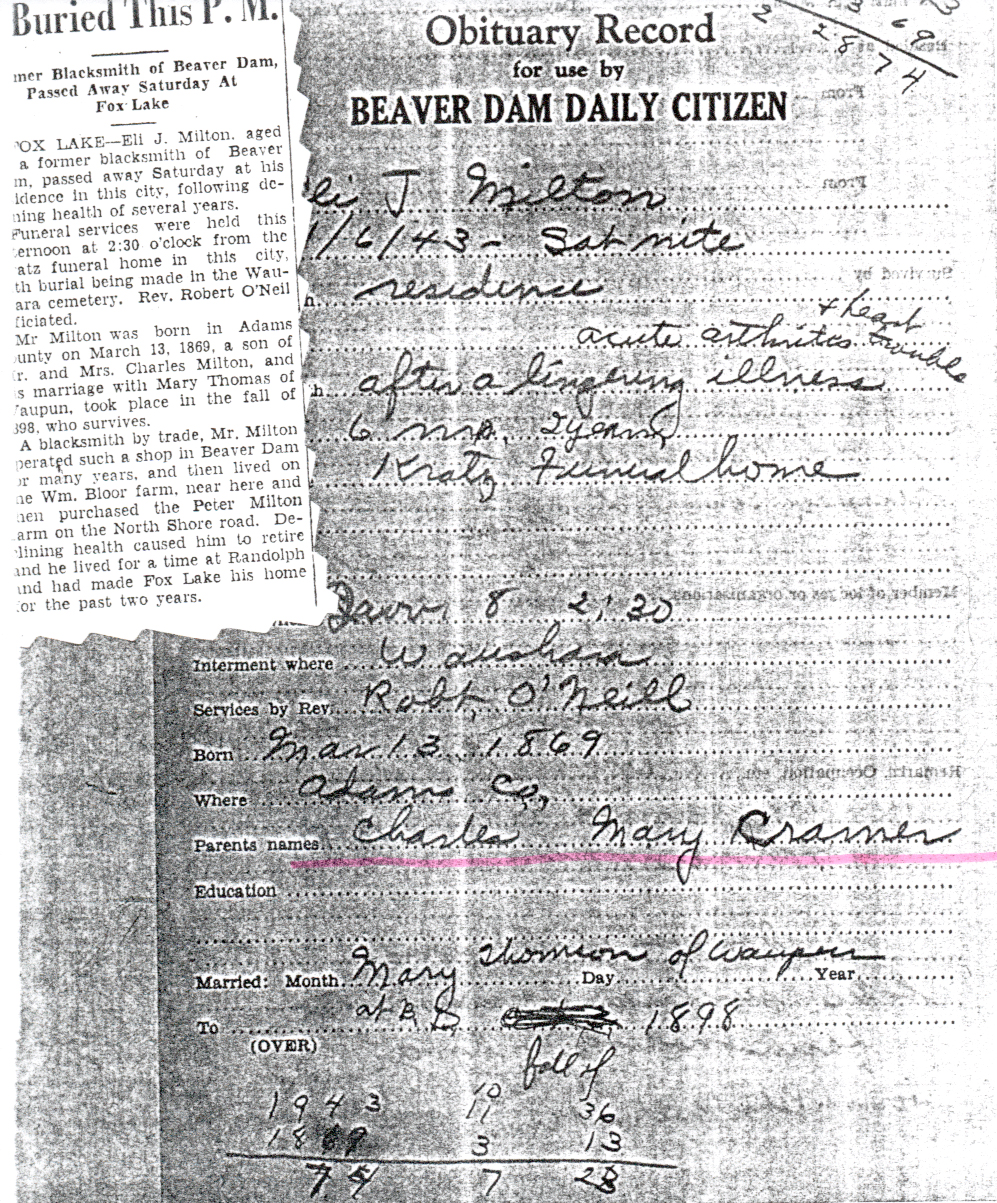 Buried This P. M.
mer Blacksmith of Beaver Dam,
Passed Away Saturday At
Fox Lake
OX LAKE—Eli J. Milton. aged
a former blacksmith of Beaver
m, passed away Saturday at his
idence in this city, following de-
ning health of several years.
Funeral services were held this
ernoon at 2:30 o'clock from the
atz funeral home in this city,
th burial being made in the Wau-
ara cemetery. Rev. Robert O'Neil
ficiated.
Mr Milton was born in Adams
unty on March 13, 1869, a son of
r. and Mrs. Charles Milton, and
s marriage with Mary Thomas of
aupun, took place in the fall of
898, who survives.
A blacksmith by trade, Mr. Milton
perated such a shop in Beaver Dam
or many years, and then lived on
he Wm. Bloor farm, near here and
hen purchased the Peter Milton
arm on the North Shore road. De-
lining health caused him to retire
and he lived for a time at Randolph
and had made Fox Lake his home
for the past two years.
Obituary Record
for use by
BEAVER DAM DAILY CITIZEN
li J Milton
1/6/43 - Sat nite
residence
acute arthrites + heart trouble
after a lingering illness
6 mo. 2 years
Kratz Funeral home
8 2:30
Interment where Waushara
Services by Rev. Robt. O'Neill
Born Mar. 13 1869
Where Adams Co,
Parents names Charles Mary Kramer
Education
Married: Month Mary Thomson of Waupun Day Year
To at B. D. 1898
(OVER) fall of
1943 11 36
1869 3 13
74 7 23